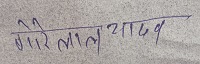 गोरे लाल यादव